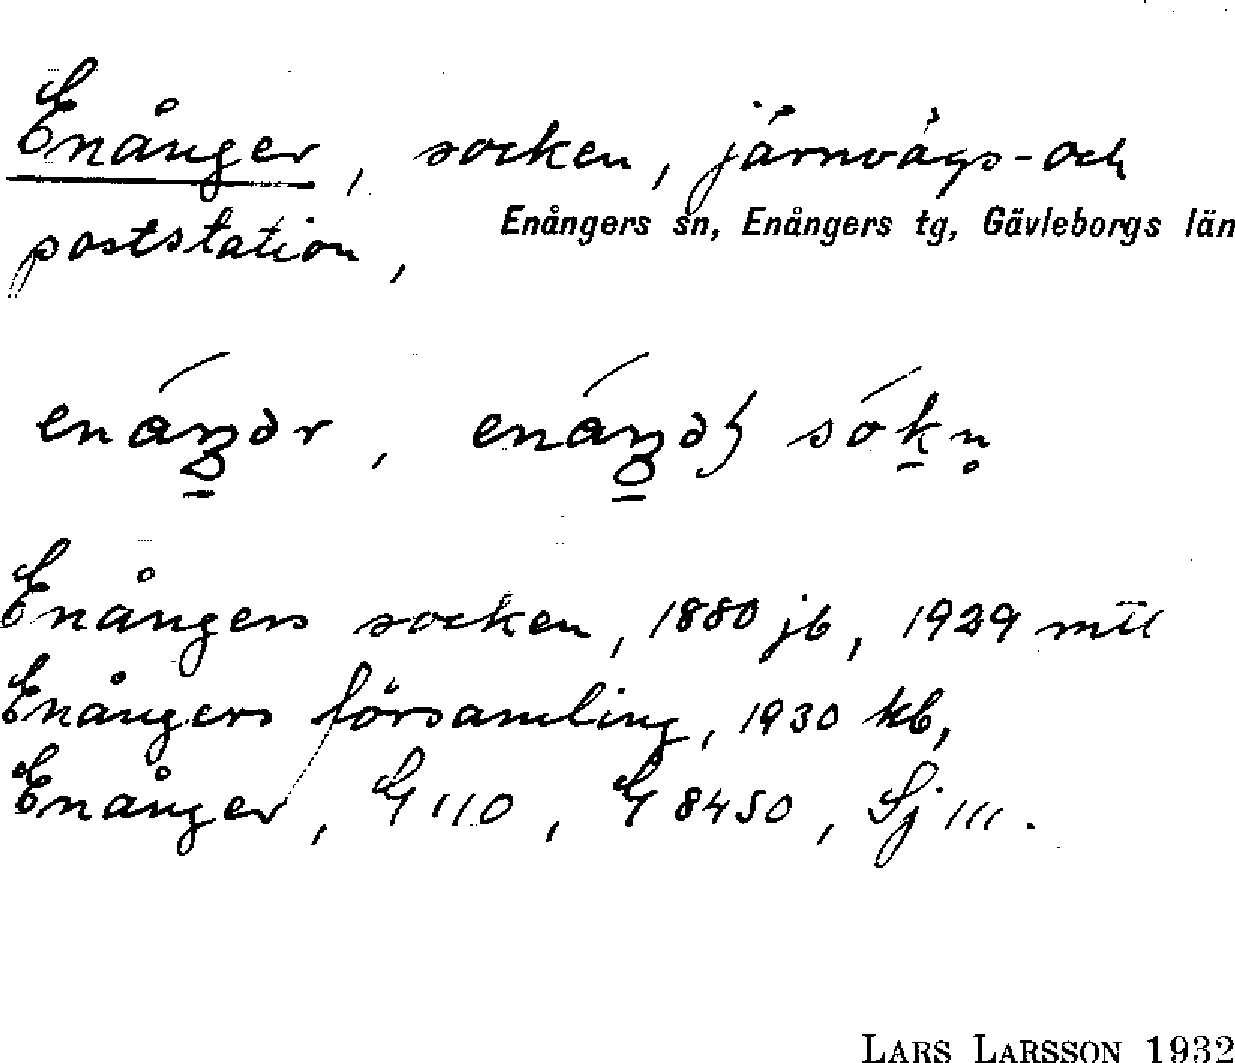 Enånger, socken, järnvägs- och
Enångers sn, Enångers tg, Gävleborgs län
poststation,
sókn̥
Enångers socken, 1880 jb, 1929 mtl
Enångers församling, 1930 kb,
Enånger, G 110, G 8450, Sj 111.
LARS LARSSON 1932